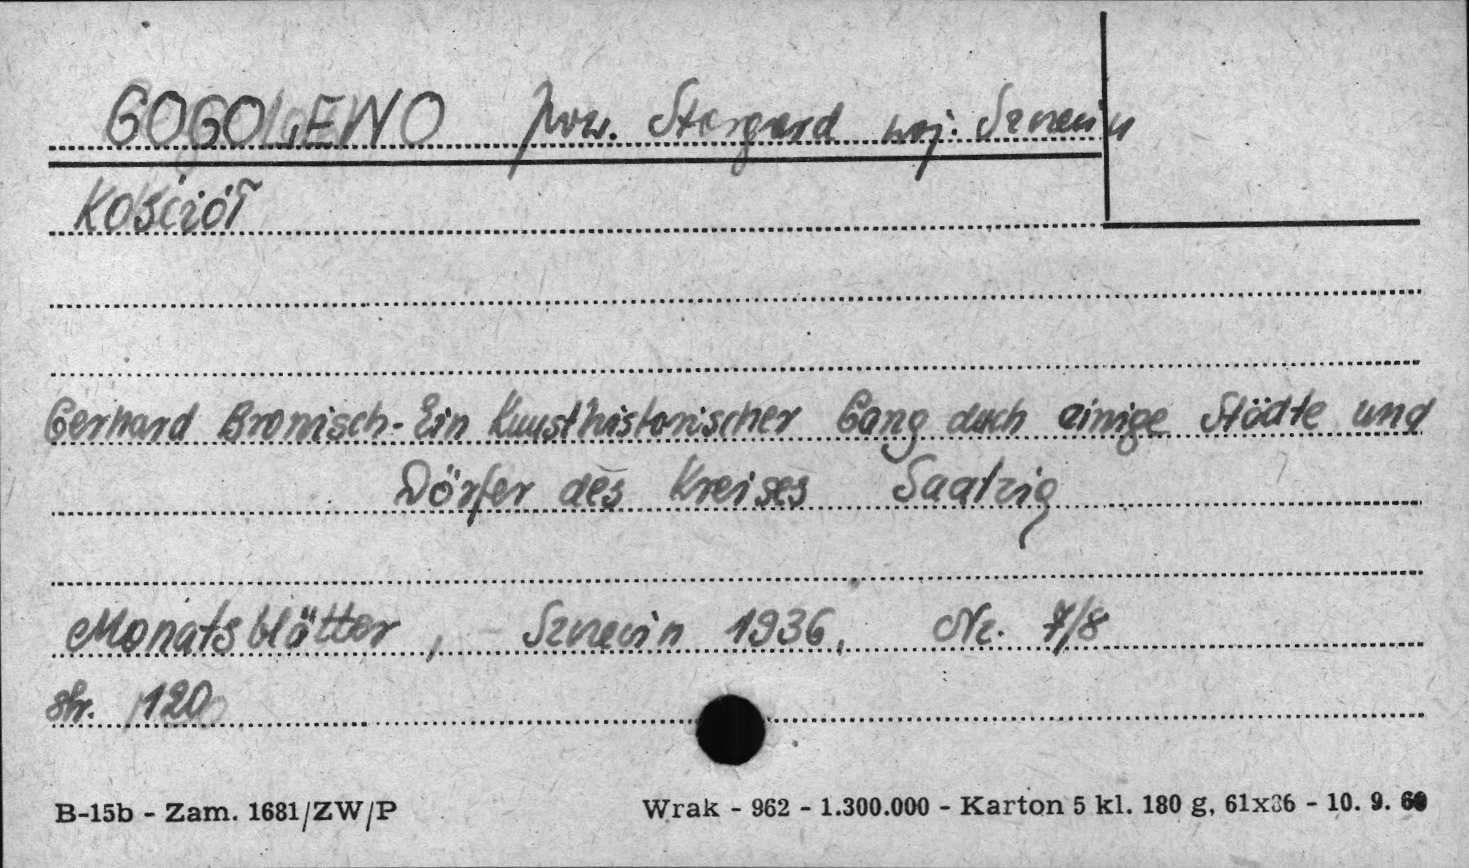 GOGOLEWO pow. Stargard woj. Szczecin
Kościół
Gerhard Bronisch - Ein Kunsthistorischer Gang duch einige Städte und
Dörfer des Kreises Saatzig
Monatsblätter, Szczecin 1936, Nr. 7/8
str. 120
B-15b - Zam. 1681/ZW/P
Wrak - 962 - 1.300.000 - Karton 5 kl. 180 g, 61x86 - 10. 9. 60